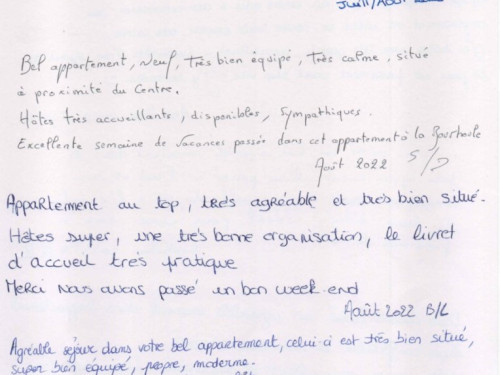 Juill/Août
Bel appartement, Neuf, très bien équipé, très calme, situé
à proximité du Centre.
Hôtes très accueillants, disponibles, sympathiques.
Excellente semaine de vacances passée dans cet appartement à la Bourboule
Août 2022 S/D
Appartement au top, très agréable et très bien situé.
Hôtes super, une très bonne organisation, le livret
d'accueil très pratique
Merci nous avons passé un bon week-end
Août 2022 B/L
Agréable séjour dans votre bel appartement, celui-ci est très bien situé,
super bien équipé, propre, moderne.